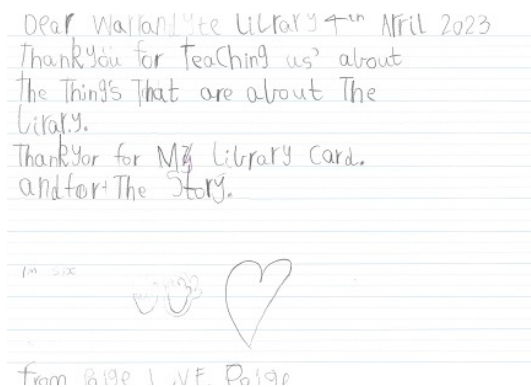 Dear Warrandyte Library 4th April 2023
Thankyou for Teaching us' about
the Thing's That are about The
Lirary.
Thankyor for My Library Card.
andfor The Story.
I'm six
from Paige LOVE Paige